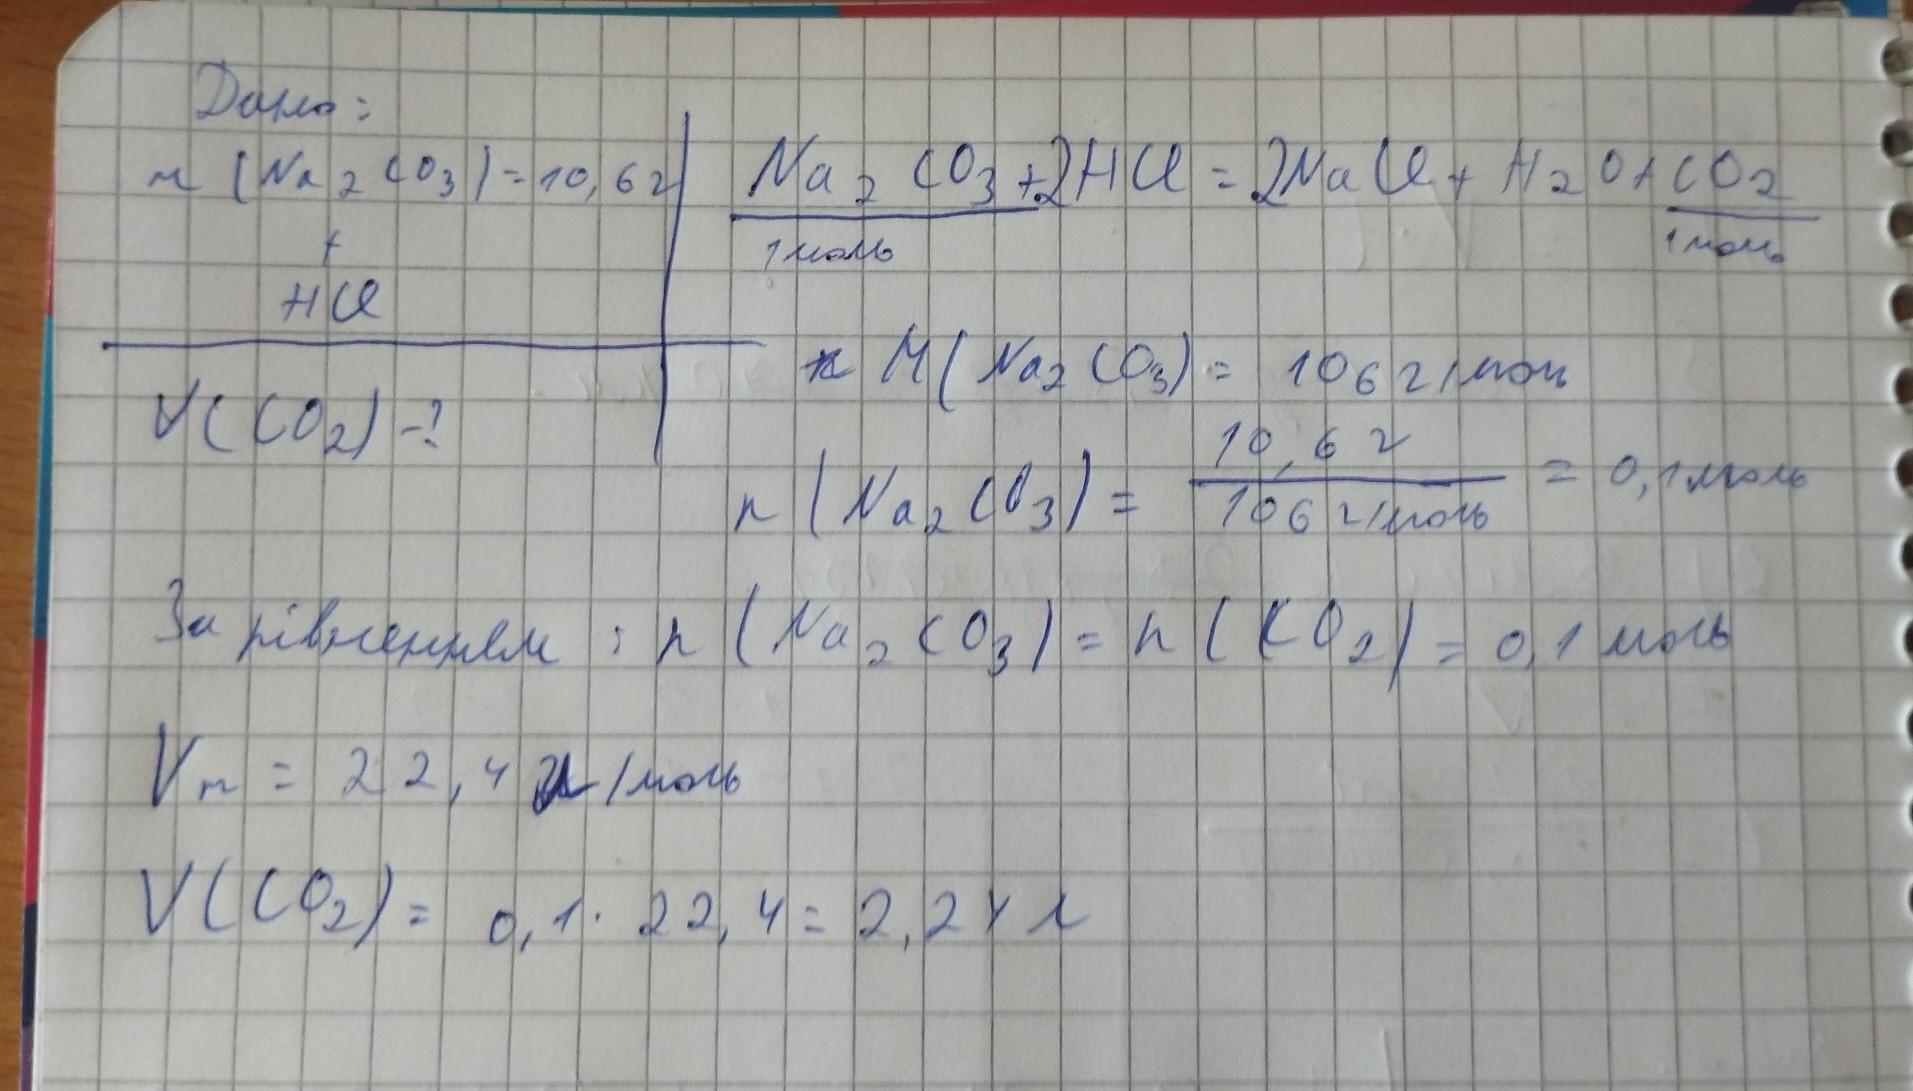 Дано:
m (Na2CO3) = 10,6г
+
HCl
V(CO2) -?
Na2CO3 + 2HCl = 2NaCl + H2O + CO2
1 моль 1 моль
M(Na2CO3) = 106 г/моль
n (Na2CO3) = 10,6 г / 106 г/моль = 0,1 моль
За рівненням : n (Na2CO3) = n (CO2) = 0,1 моль
Vm = 22,4 л/моль
V(CO2) = 0,1 · 22,4 = 2,24 л